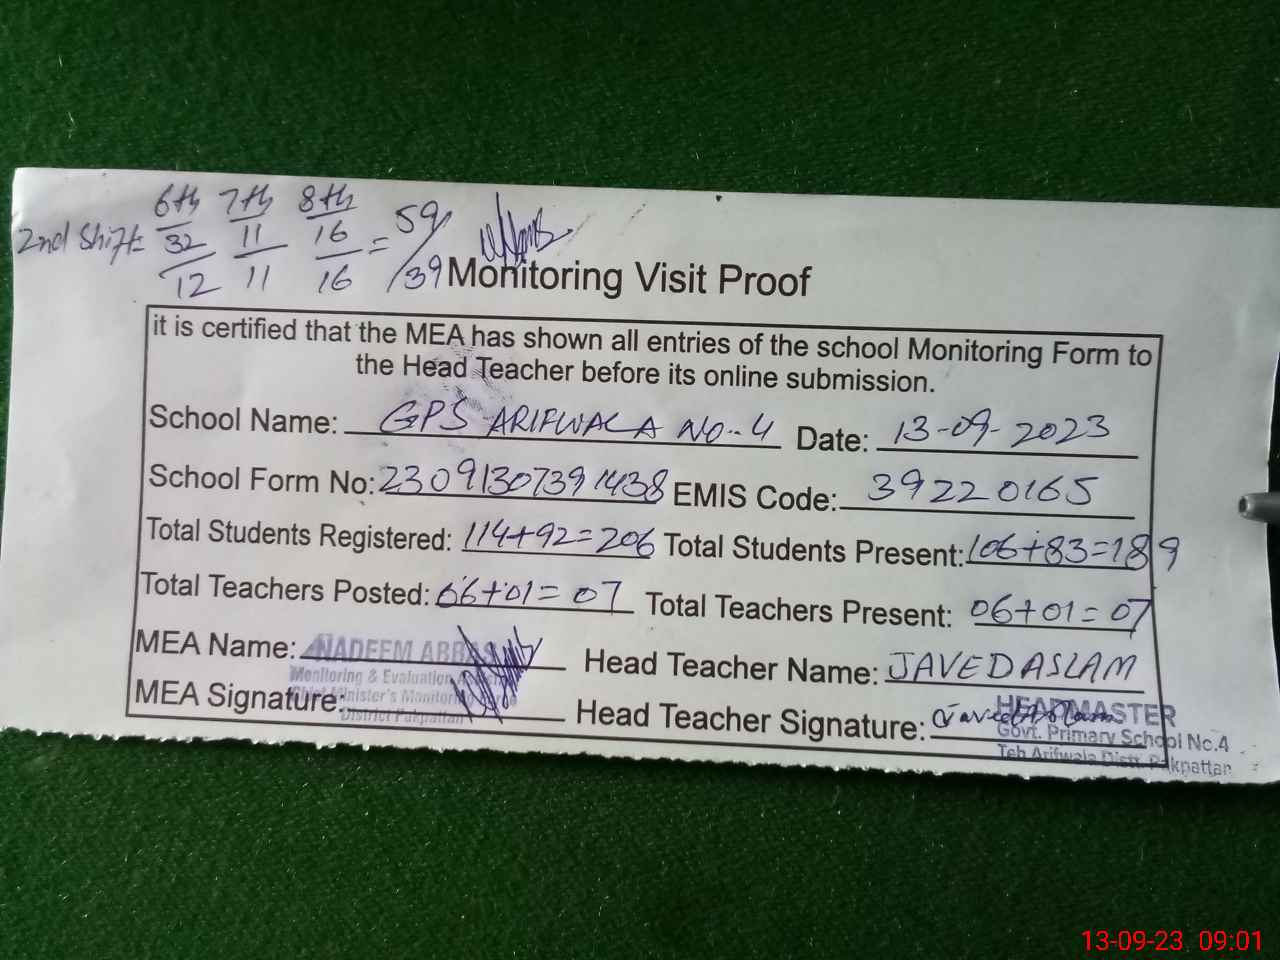 6th 7th 8th
2nd Shift: 32 11 16 = 59/39
12 11 16
Monitoring Visit Proof
it is certified that the MEA has shown all entries of the school Monitoring Form to
the Head Teacher before its online submission.
School Name: GPS ARIFWALA No-4 Date: 13-09-2023
School Form No: 23091307391438 EMIS Code: 39220165
Total Students Registered: 114+92=206 Total Students Present: 106+83=189
Total Teachers Posted: 06+01=07 Total Teachers Present: 06+01=07
MEA Name: NADEEM ABBAS Head Teacher Name: JAVED ASLAM
Monitoring & Evaluation
MEA Signature: Chief Minister's Monitoring Head Teacher Signature: Javed Aslam
District Pakpattan
HEADMASTER
Govt. Primary School No.4
Teh Arifwala Distt. Pakpattan
13-09-23 09:01